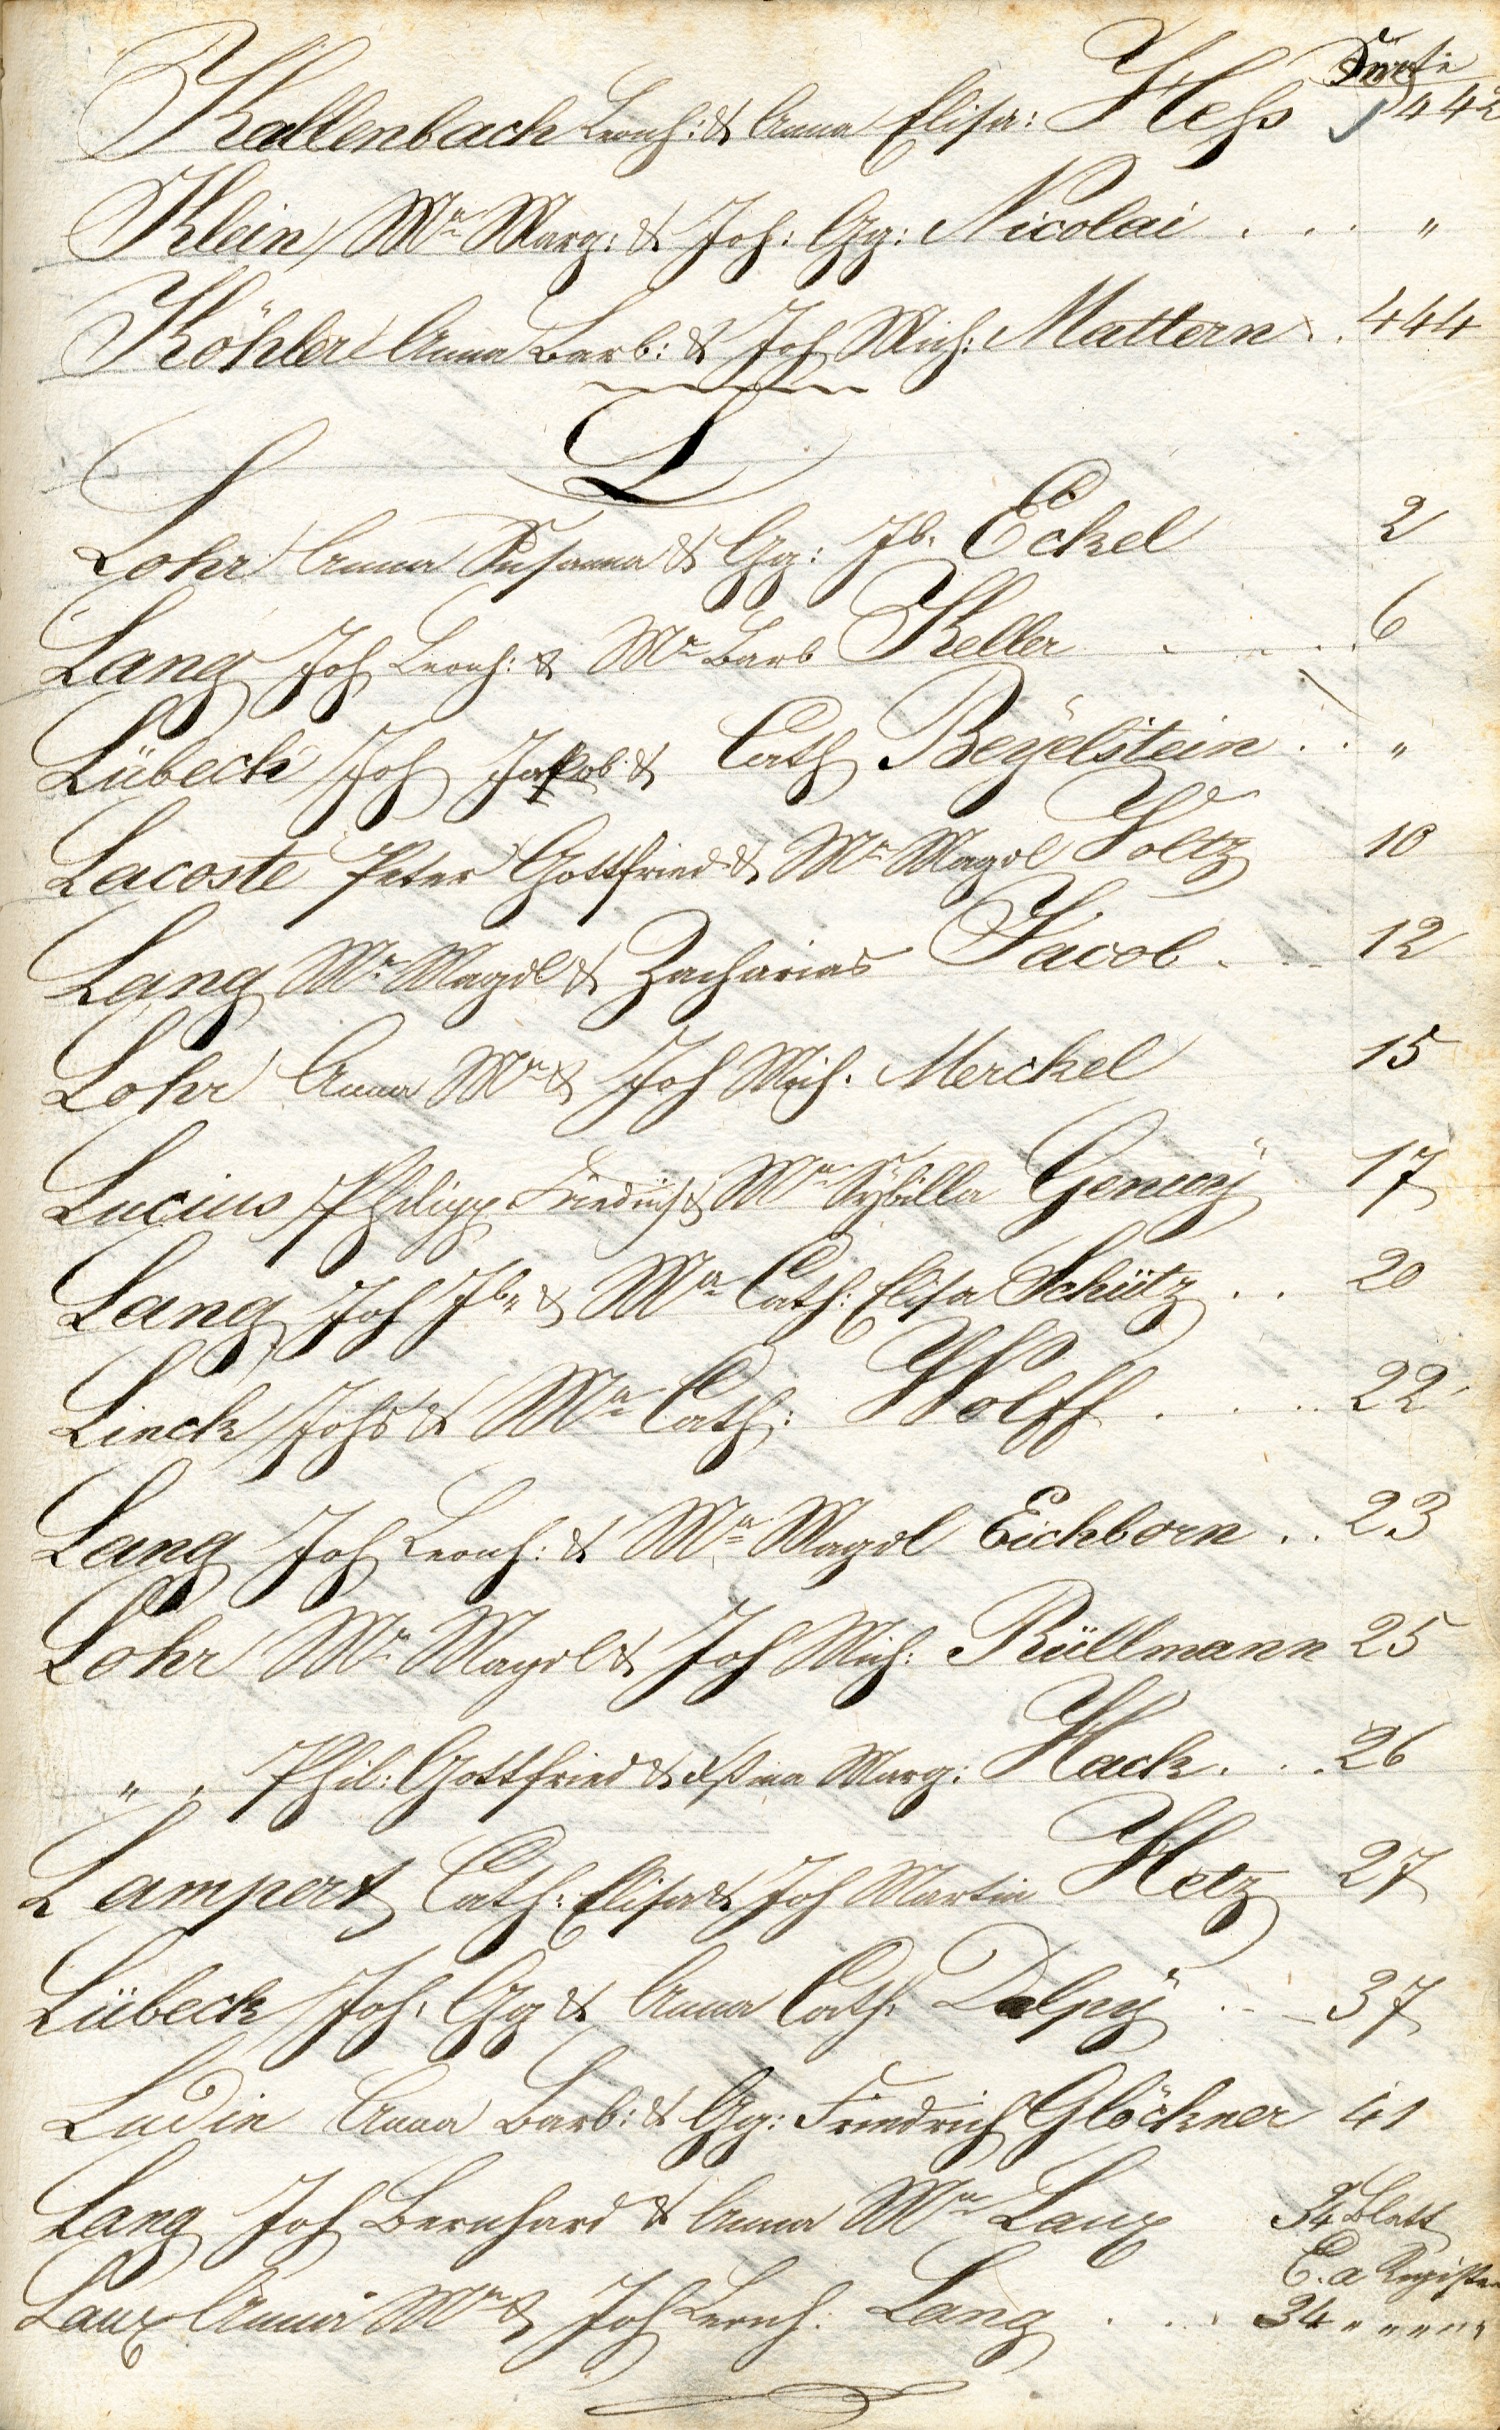 Seite
Kallenbach Leonh: & Anna Elisa: Heß 442
Klein Mª Marg: & Joh: Gg: Nicolai . . . "
Köhler Anna Barb: & Joh Mich: Mattern . 444
L
Lohr Anna Susanna & Gg: Jb. Eckel 2
Lang Joh Leonh: & Mª Barb Keller . . . . 6
Lübeck Joh Jakob & Cath Beyelstein . . "
Lacoste Peter Gottfried & Mª Magdl Voltz 10
Lang Mª Magdl & Zacharias Jacob . . . 12
Lohr Anna Mª & Joh Mich. Merckel 15
Lucius Philipp Friedrich & Mª Sybilla Genvoÿ 17
Lang Joh Jb. & Mª Cath: Elisa Schütz . . 20
Linck Johs & Mª Cath: Wolff . . . . 22
Lang Joh Leonh: & Mª Magdl Eichborn . . 23
Lohr Mª Magdl & Joh Mich: Rüllmann 25
" . Phil: Gottfried & Marg: Hack . . . 26
Lampert Cath: Elisa & Joh Martin Hetz 27
Lübeck Joh. Gg & Anna Cath. Delpÿ . . . 37
Ludin Anna Barb: & Gg: Friedrich Glöckner 41
Lang Joh Bernhard & Anna Mª Laux 34 Blatt
C. a Register
Laux Anna Mª & Joh Leonh: Lang . . . 34 " " " " "